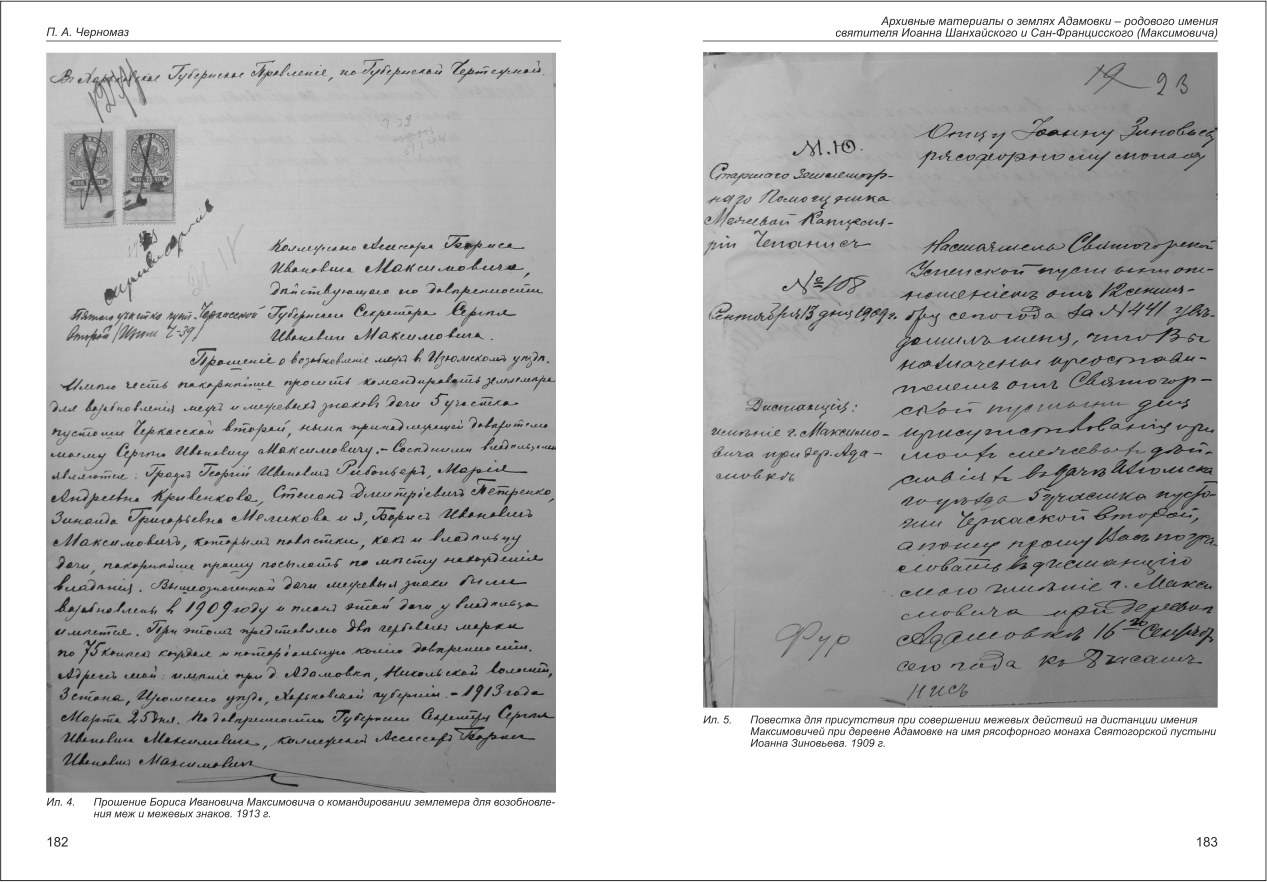 П. А. Черномаз
Въ Харьковское Губернское Правленіе, по Губернской Чертежной.
Коллежскаго Асессора Бориса
Ивановича Максимовича,
дѣйствующаго по довѣренности
Губернскаго Секретаря Сергѣя
Ивановича Максимовича.
Пятаго участка пуст. Черкасской
второй
Прошеніе о возобновленіе межъ в Изюмскомъ уѣздѣ.
Имѣю честь покорнѣйше просить командировать землемѣра
для возобновленія межъ и межевыхъ знаковъ дачи 5 участка
пустоши Черкасской второй, нынѣ принадлежащей довѣрителю
моему Сергѣю Ивановичу Максимовичу. – Сосѣдними владѣльцами
являются: Графъ Георгій Ивановичъ Рибопьеръ, Марія
Андреевна Кривенкова, Степанъ Дмитріевичъ Петренко,
Зинаида Григорьевна Меликова и я, Борисъ Ивановичъ
Максимовичъ, которымъ повѣстки, какъ и владѣльцу
дачи, покорнѣйше прошу послать по мѣсту нахожденія
владѣнія. Вышеозначенной дачи межевые знаки были
возобновлены в 1909 году и планъ этой дачи у владѣльца
имѣется. При этомъ представляю двѣ гербовыхъ марки
по 75 копѣекъ каждая и нотаріальную копію довѣренности.
Адресъ мой: имѣніе при д. Адамовка, Никольской волости,
3 стана, Изюмскаго уѣзда, Харьковской губерніи. – 1913 года
Марта 25 дня. По довѣренности Губернскаго Секретаря Сергѣя
Ивановича Максимовича, коллежскій Асессоръ Борисъ
Ивановичъ Максимовичъ
Ил. 4. Прошение Бориса Ивановича Максимовича о командировании землемера для возобновле-
ния меж и межевых знаков. 1913 г.
182
Архивные материалы о землях Адамовки – родового имения
святителя Иоанна Шанхайского и Сан-Францисского (Максимовича)
19 23
М.Ю.
Старшаго Землемѣр-
наго Помощника
Межевой Канцеля-
ріи
№ 108
Сентября 13 дня 1909 г.
Дистанція:
имѣніе г. Максимо-
вича при дер. Ада-
мовкѣ
Отцу Іоанну Зиновьеву
рясофорному монаху
Настоятель Святогорской
Успенской пустыни отно-
ношеніемъ отъ 12 сентя-
бря сего года за № 441 увѣ-
домилъ меня, что Вы
назначены представи-
телемъ отъ Святогор-
ской пустыни для
присутствованія при
моихъ межевыхъ дѣй-
ствіяхъ въ дачѣ Изюмска
го уѣзда 5 участка пусто-
ши Черкаской второй,
а потому прошу Васъ пожа-
ловать въ дистанцію
мою имѣніе г. Макси
мовича при деревни
Адамовкѣ 16го Сентября
сего года къ 8 часамъ
Ил. 5. Повестка для присутствия при совершении межевых действий на дистанции имения
Максимовичей при деревне Адамовке на имя рясофорного монаха Святогорской пустыни
Иоанна Зиновьева. 1909 г.
183